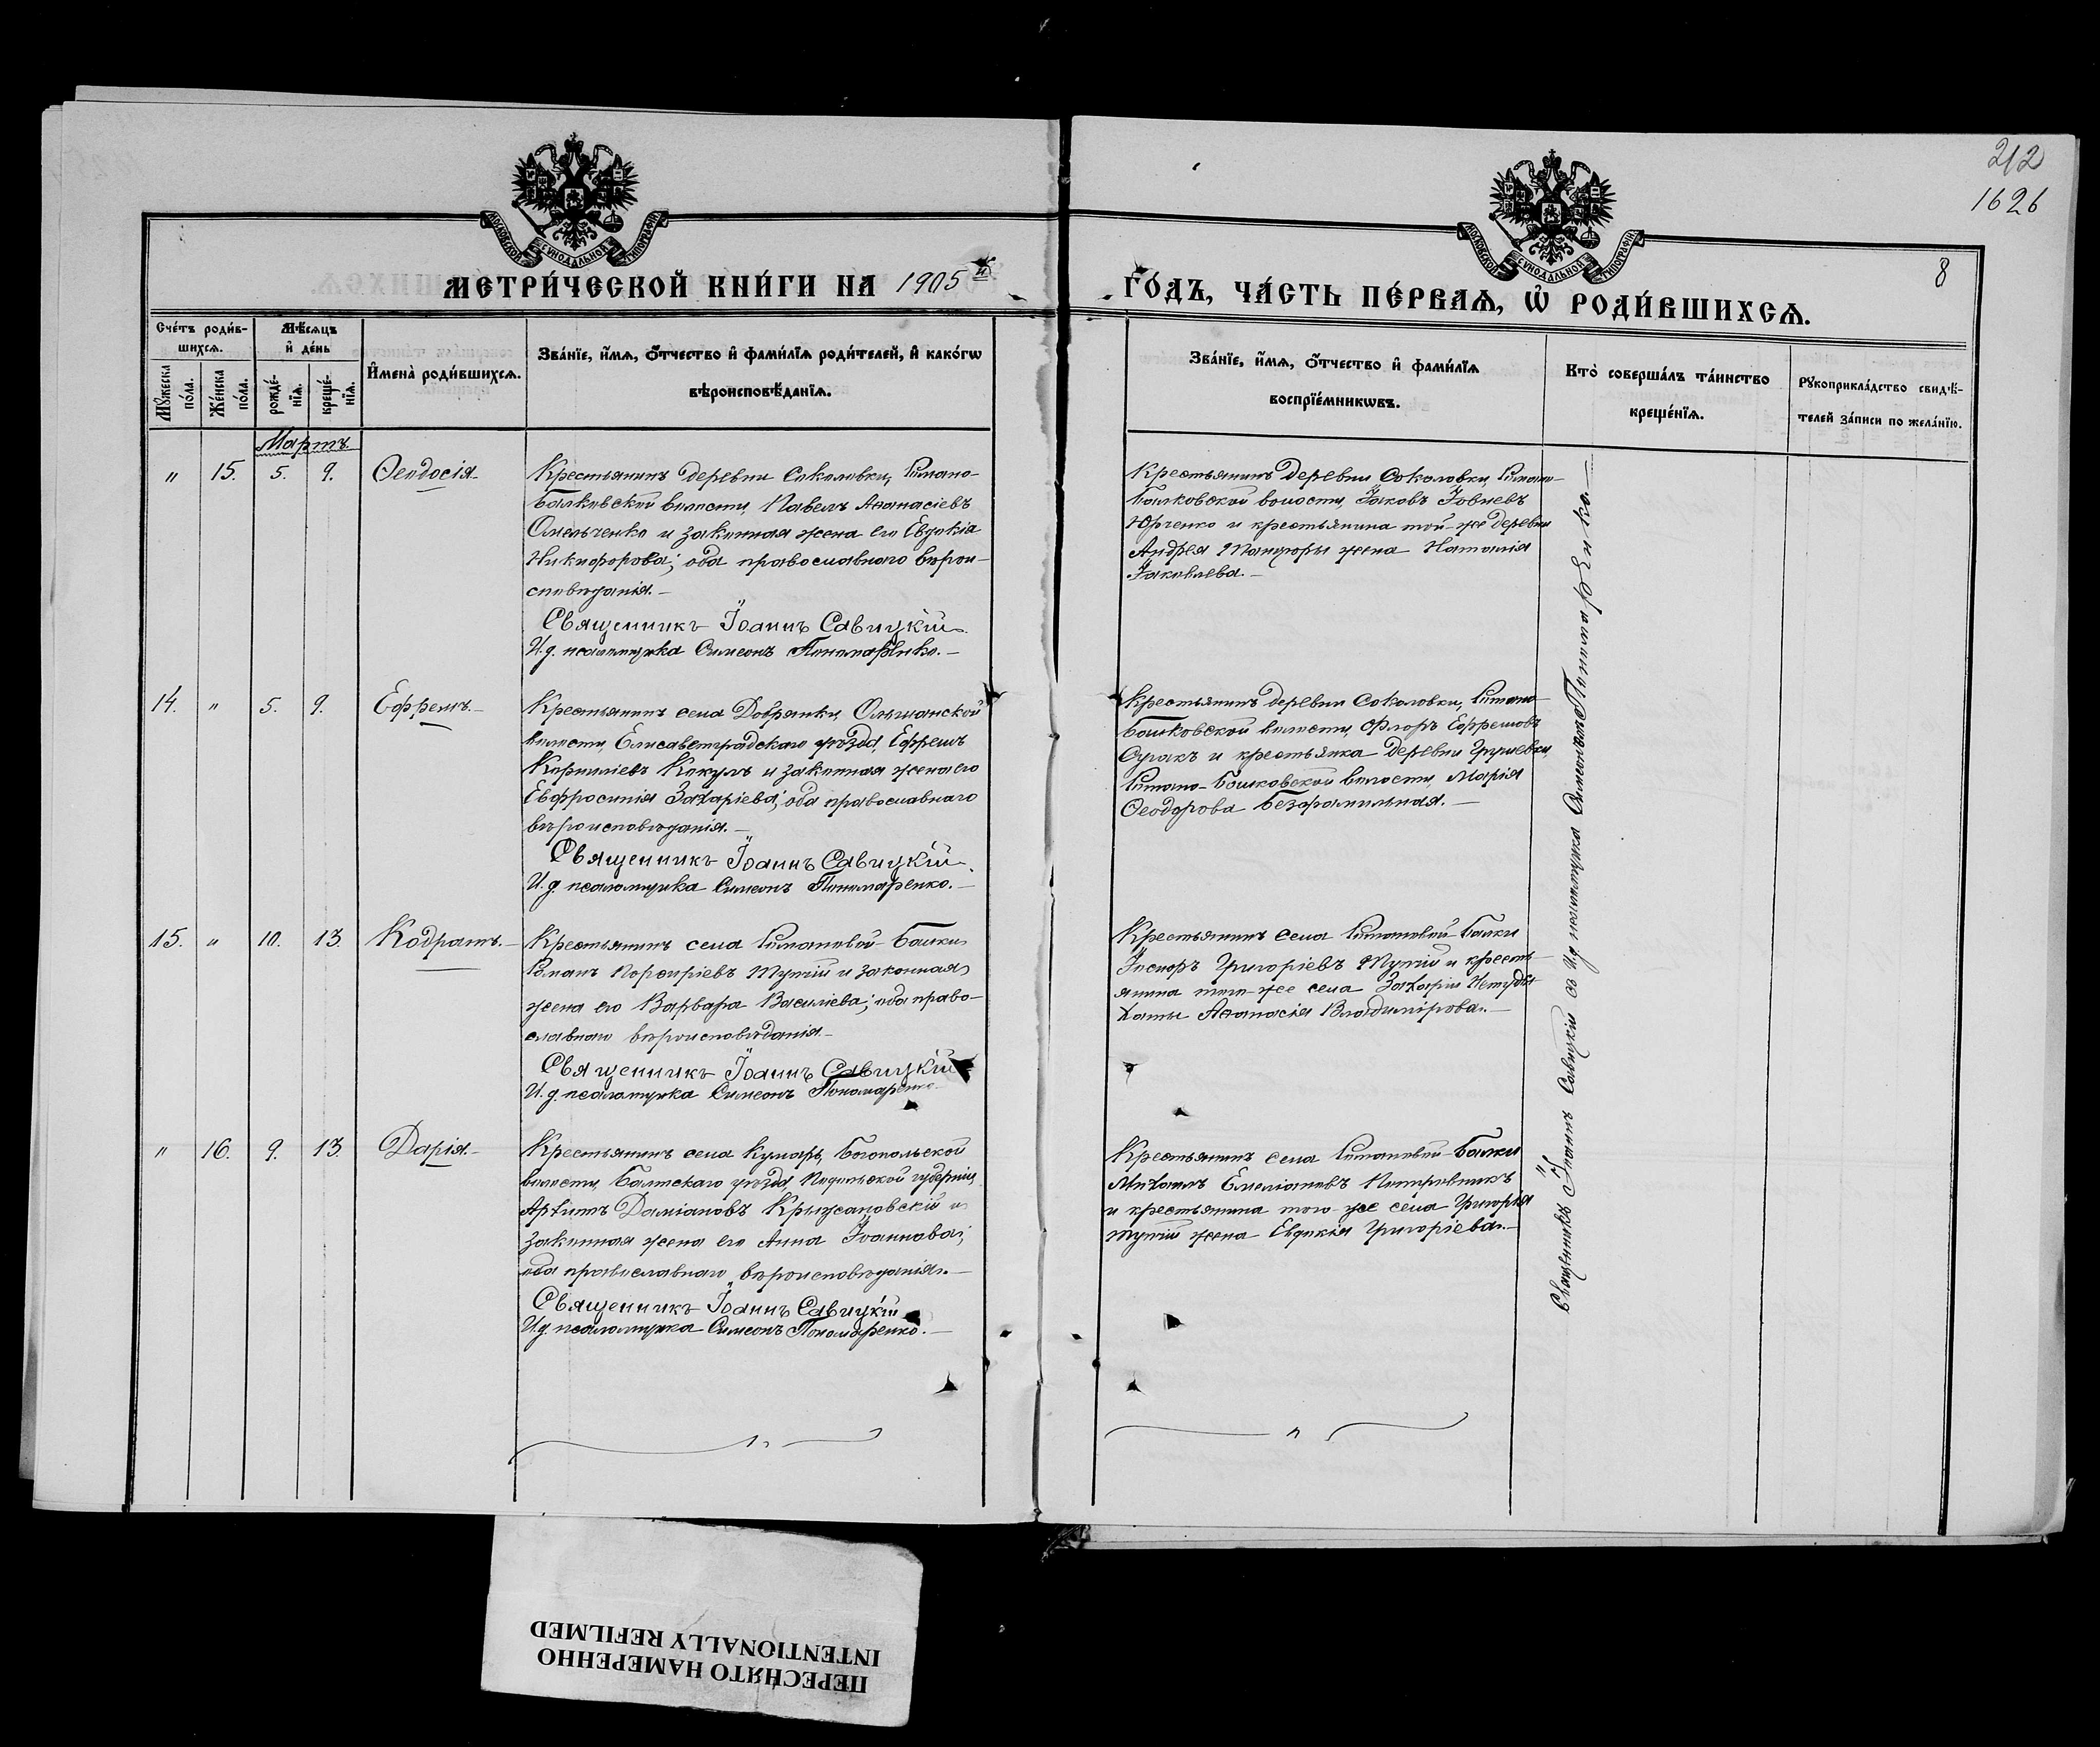 212
1626
8
МОСКОВСКОЙ СѴНОДАЛЬНОЙ ТИПОГРАФІИ
МОСКОВСКОЙ СѴНОДАЛЬНОЙ ТИПОГРАФІИ
МЕТРИ́ЧЕСКОЙ КНИ́ГИ НА 1905й
ГО́ДЪ, ЧА́СТЬ ПЕ́РВАѦ, Ѡ҆ РОДИ́ВШИХСѦ.
Сче́тъ роди́в-
шихсѧ.
Мѣ́сѧцъ
и҆ де́нь
Мꙋ́жеска по́ла.
Же́нска по́ла.
рожде́-нїѧ.
креще́-нїѧ.
И҆мена̀ роди́вшихсѧ.
Зва́нїе, и҆́мѧ, ѻ҆́тчество и҆ фами́лїѧ роди́телей, и҆ како́гѡ
вѣроисповѣ́данїѧ.
Зва́нїе, и҆́мѧ, ѻ҆́тчество и҆ фами́лїѧ
воспрїе́мникѡвъ.
Кто̀ соверша́лъ та́инство
креще́нїѧ.
Рꙋкоприкла́дство свидѣ́-
телей за́писи по жела́нїю.
Мартъ.
" 15. 5. 9. Ѳеодосія.
Крестьянинъ деревни Соколовки,
Балковской волости, Павелъ Аѳанасіевъ
Омельченко и законная жена его Евдокія
Никифорова; оба православнаго вѣрои-
сповѣданія.
Священникъ Іоаннъ Савицкій
И.д. псаломщика Симеонъ Пономаренко.
Крестьянинъ деревни Соколовки,
Балковской волости, Іаковъ Іовлевъ
Юрченко и крестьянина той-же деревни
Андрея жена Наталія
Іаковлева.
14. " 5. 9. Ефремъ.
Крестьянинъ села Добрянки, Ольшанской
волости, Елисаветградскаго уѣзда, Ефремъ
Корниліевъ Кокулъ и законная жена его
Евфросинія Захаріева; оба православнаго
вѣроисповѣданія.
Священникъ Іоаннъ Савицкій
И.д. псаломщика Симеонъ Пономаренко.
Крестьянинъ деревни Соколовки,
Балковской волости, Флоръ Ефремовъ
Сугакъ и крестьянка деревни Грушевки,
Балковской волости, Марія
Ѳеодорова Безфамильная.
15. " 10. 13. Кодратъ.
Крестьянинъ села Балки
Романъ Порфиріевъ Мутій и законная
жена его Варвара Василіева; оба право-
славнаго вѣроисповѣданія.
Священникъ Іоаннъ Савицкій
И.д. псаломщика Симеонъ Пономаренко
Крестьянинъ села Балки
Григоріевъ Мутій и кресть-
янина того-же села Захаріи Нетуды-
хаты Аѳанасія Владимірова.
" 16. 9. 13. Дарія.
Крестьянинъ села Кумаръ, Богопольской
волости, Балтскаго уѣзда, Подольской губерніи,
Архипъ Даміановъ Крыжановскій и
законная жена его Анна Іоаннова;
оба православнаго вѣроисповѣданія.
Священникъ Іоаннъ Савицкій
И.д. псаломщика Симеонъ Пономаренко.
Крестьянинъ села Балки
Михаилъ Емеліановъ
и крестьянина того-же села Григорія
Мутій жена Евдокія Григоріева.
Священникъ Іоаннъ Савицкій съ И.д. псаломщика Симеономъ Пономаренко.
ПЕРЕСНЯТО НАМЕРЕННО
INTENTIONALLY REFILMED